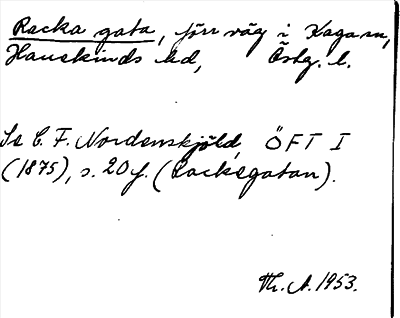 Racka gata, förr väg i Kaga sn,
Hanekinds hd, Östg. l.
Se C. F. Nordenskjöld, ÖFT I
(1875), s. 20 f. (Racksgatan).
Th. A. 1953.